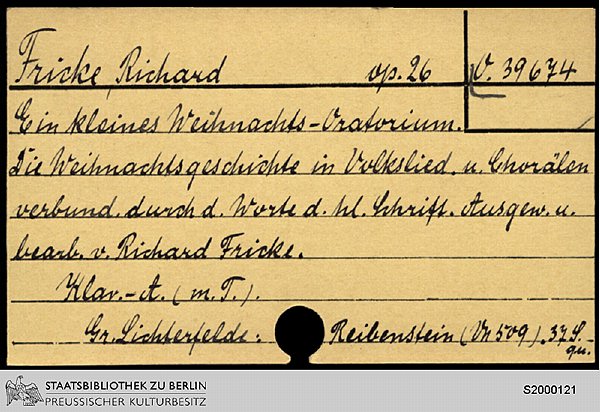 Fricke, Richard op. 26 O. 39674
Ein kleines Weihnachts-Oratorium.
Die Weihnachtsgeschichte in Volkslied. u. Chorälen
verbund. durch d. Worte d. hl. Schrift. Ausgew. u.
bearb. v. Richard Fricke.
Klav.-A. (m. T.).
Gr. Lichterfelde: Reibenstein (Vn 509). 37 S.
qu.
STAATSBIBLIOTHEK ZU BERLIN
PREUSSISCHER KULTURBESITZ
S2000121